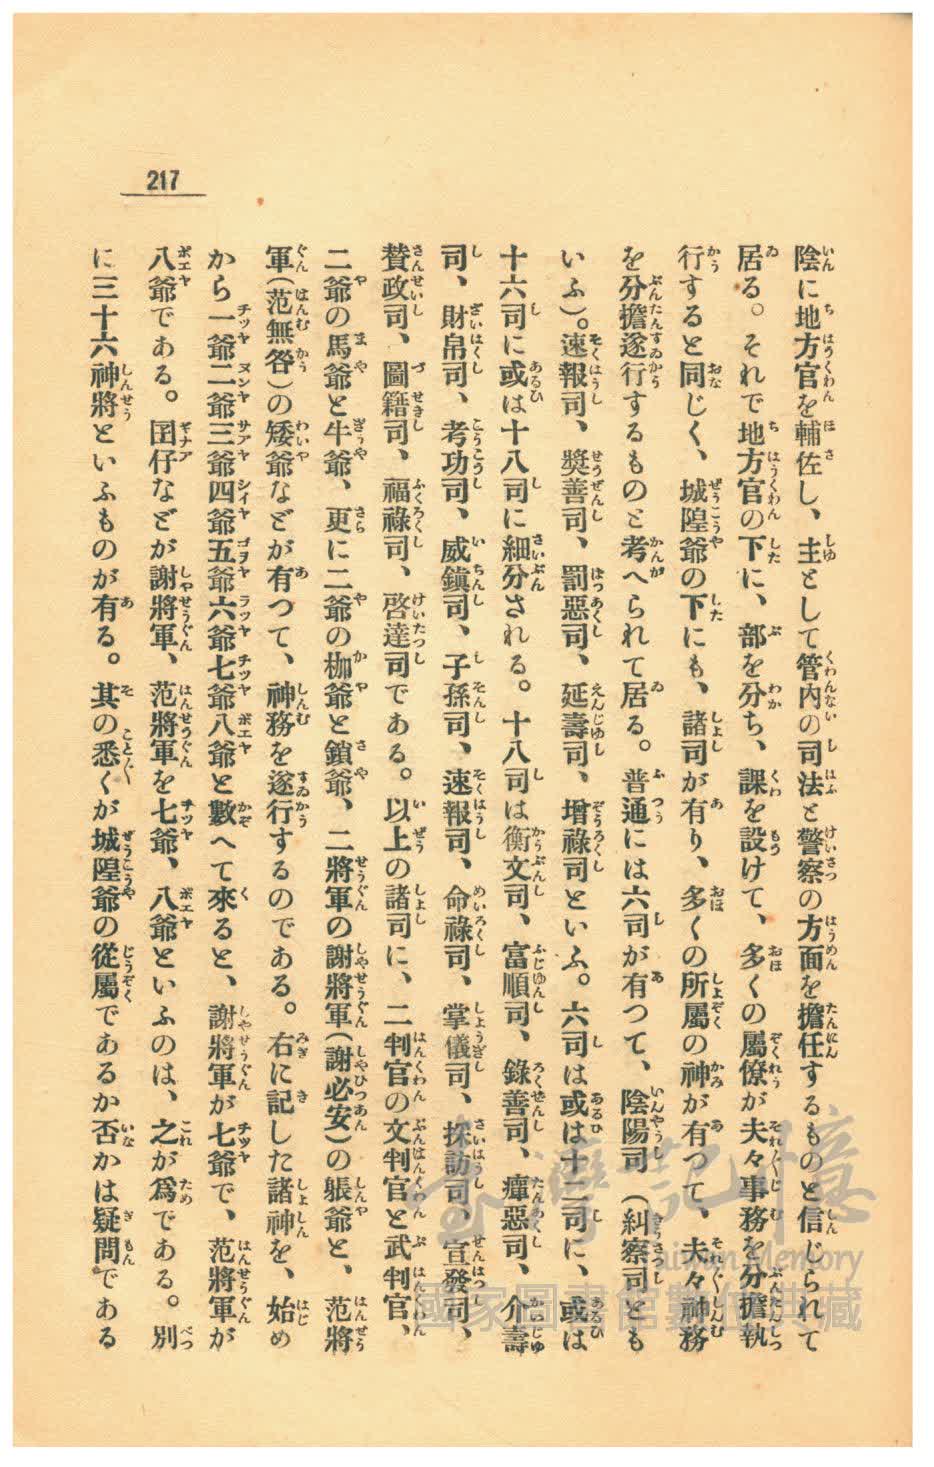 217
陰に地方官を輔佐し、主として管内の司法と警察の方面を擔任するものと信じられて
居る。それで地方官の下に、部を分ち、課を設けて、多くの屬僚が夫々事務を分擔執
行すると同じく、城隍爺の下にも、諸司が有り、多くの所屬の神が有つて、夫々神務
を分擔遂行するものと考へられて居る。普通には六司が有つて、陰陽司（糾察司とも
いふ）。速報司、奬善司、罰惡司、延壽司、增祿司といふ。六司は或は十二司に、或は
十六司に或は十八司に細分される。十八司は衡文司、富順司、錄善司、瘴惡司、介壽
司、財帛司、考功司、威鎭司、子孫司、速報司、命祿司、掌儀司、採訪司、宣發司、
贊政司、圖籍司、福祿司、啓達司である。以上の諸司に、二判官の文判官と武判官、
二爺の馬爺と牛爺、更に二爺の枷爺と鎖爺、二將軍の謝將軍（謝必安）の賬爺と、范將
軍（范無咎）の矮爺などが有つて、神務を遂行するのである。右に記した諸神を、始め
から一爺二爺三爺四爺五爺六爺七爺八爺と數へて來ると、謝將軍が七爺で、范將軍が
八爺である。囝仔などが謝將軍、范將軍を七爺、八爺といふのは、之が爲である。別
に三十六神將といふものが有る。其の悉くが城隍爺の從屬であるか否かは疑問である
臺灣記憶
Taiwan Memory
國家圖書館數位典藏